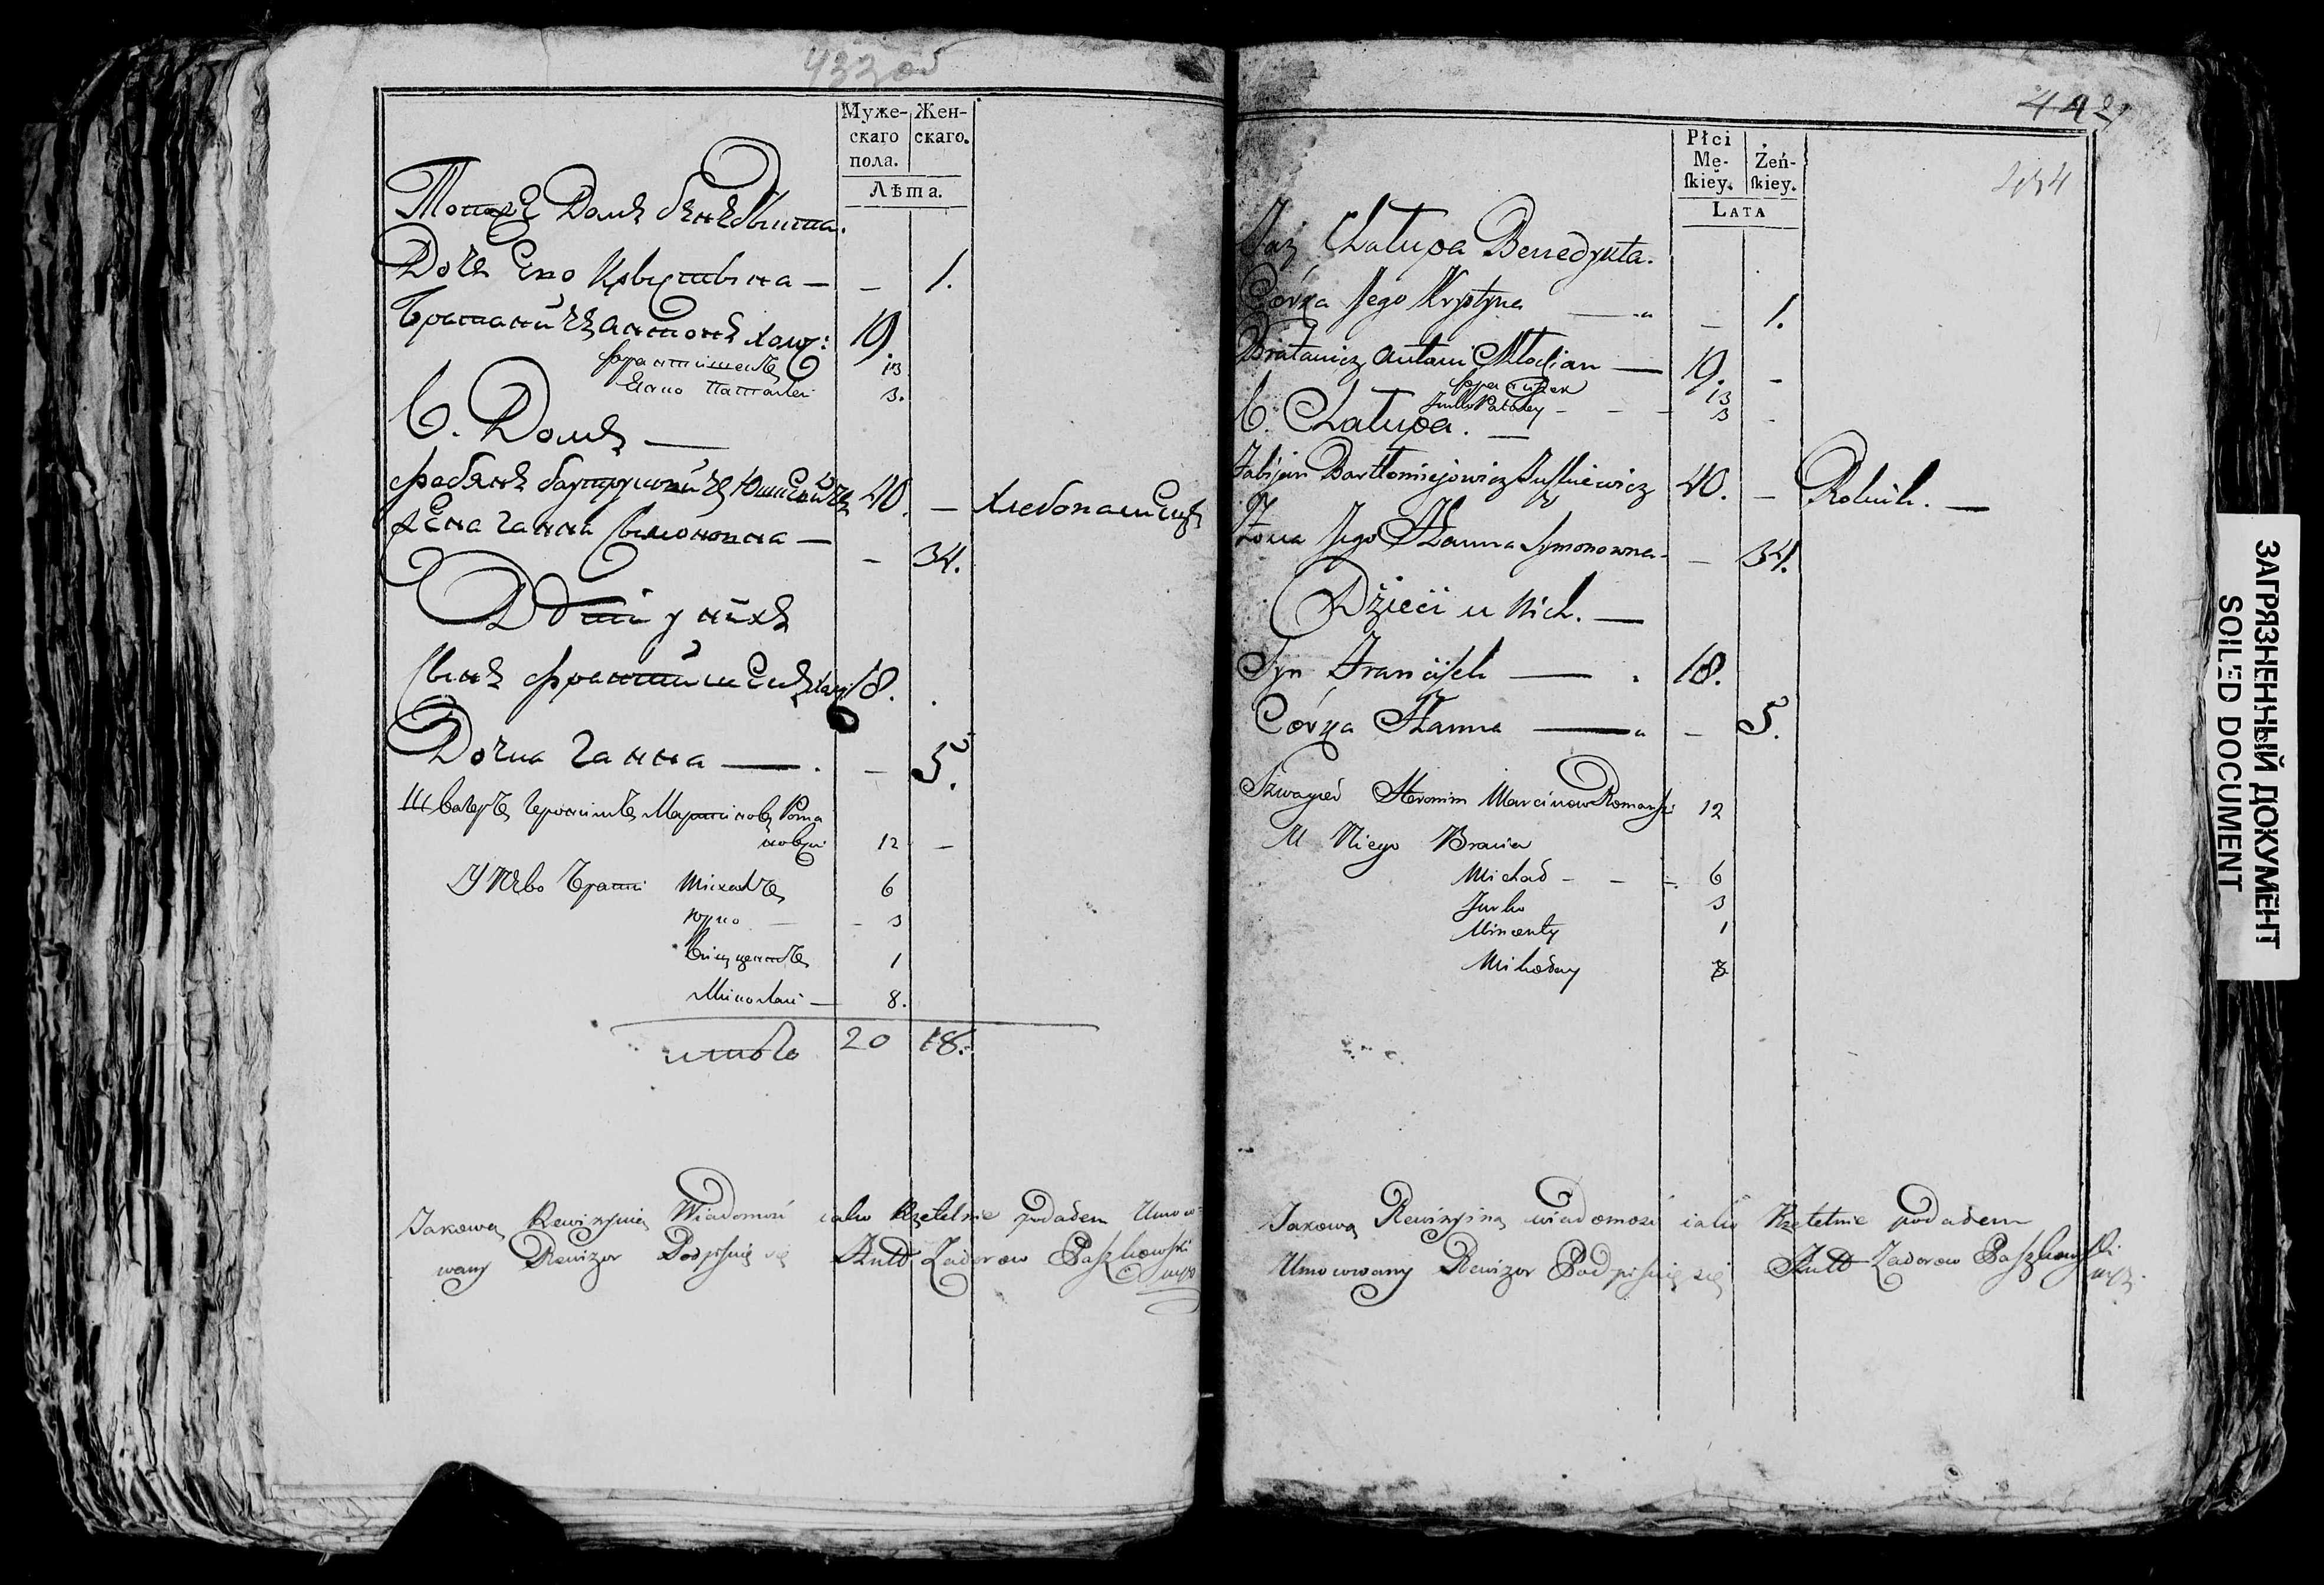 433 об
Муже-
скаго
пола.
Жен-
скаго.
Лѣта.
Тотже Домъ бенедыкта.
Дочь Его Крыстына — — 1.
Братаничъ антонъ холос: 19.
францишекъ 13
Янко Паталей 3.
6. Домъ —
фабянъ бартломіевичъ Юшкевичъ 40. — хлебопашецъ
жена ганна сымоновна — — 34.
Дѣти у нихъ
сынъ францишекъ холос 18.
Дочка ганна — . — 5.
Швагеръ Геронимъ Мартиновъ Рома
новски 12 —
У Него Браты Михалъ 6
Юрко — 3
Винцентъ 1
Миколай — 8.
итого 20 18.
Jakową Rewizyiną Wiadomość iako Rzetelnie podałem Umoco
wany Rewizor Podpisuię się Zadorow Paszkowski
mpp
442
434
Płci
Mę-
ſkiey.
Żeń-
ſkiey.
LATA
Taż Chałupa Benedykta.
Córka Jego Krystyna — — 1.
Bratanicz Antoni Młodzian — 19. -
Franciszek 13
Janko Patałey - - - 3 -
6. Chałupa. —
Fabijan Bartłomiejowicz Juszkiewicz 40. — Rolnik. —
Żona Jego Hanna Symonowna - — 34.
Dzieci u Nich. —
Syn Franciszek — . 18.
Córka Hanna — — 5.
Szwagier Heronim Marcinow Romanowski 12
U Niego Bracia
Michał - - - 6
Jurko 3
Wincenty 1
Mikołay 8
Jakową Rewizyiną wiadomość iako Rzetelnie podałem
Umocowany Rewizor Podpisuię się Zadorow Paszkowski
mpp.
ЗАГРЯЗНЕННЫЙ ДОКУМЕНТ
SOILED DOCUMENT